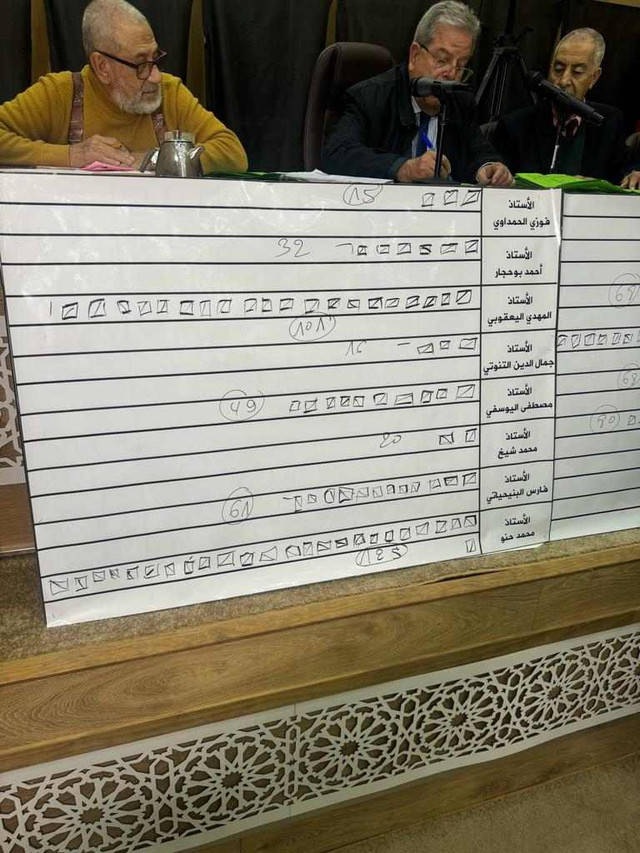 15
الأستاذ
فوزي الحمداوي
32
الأستاذ
أحمد بوحجار
الأستاذ
المهدي اليعقوبي
101
16
الأستاذ
جمال الدين التنوتي
49
الأستاذ
مصطفى اليوسفي
20
الأستاذ
محمد شيخ
61
الأستاذ
فارس البنيحياتي
الأستاذ
محمد حنو
125
68
90